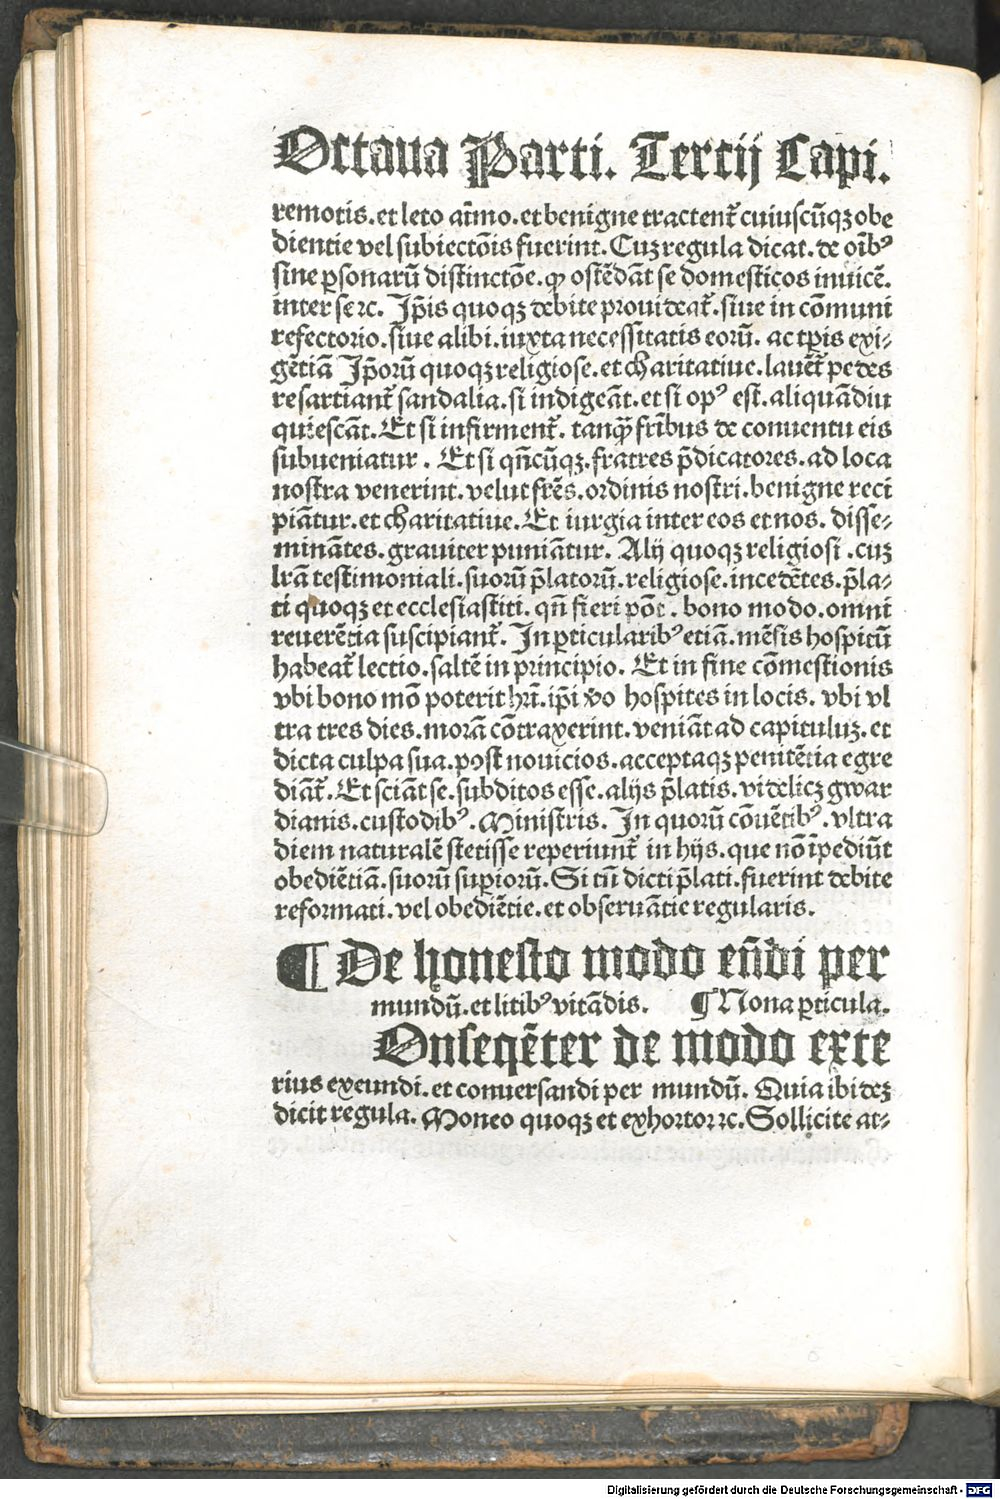 Octaua Parti. Tercij Capi.
remotis. et leto aĩmo. et benigne tractent᷑ cuiuscũqꝫ obe
dientie vel subiectõis fuerint. Cuꝫ regula dicat. de oĩbꝰ
sine ꝑsonarũ distinctõe. ꝙ ostẽdãt se domesticos inuicẽ.
inter se ⁊c. Jp̃is quoqꝫ debite prouideat᷑. siue in cõmuni
refectorio. siue alibi. iuxta necessitatis eorũ. ac tp̱is exi⸗
gẽtiã Jp̃orũ quoqꝫ religiose. et charitatiue. lauẽt᷑ pedes
resartiant᷑ sandalia. si indigeãt. et si opꝰ est. aliquãdiu
quiescãt. Et si infirment᷑. tanq̃ȝ fr̃ibus de conuentu eis
subueniatur. Et si qñcũqꝫ. fratres p̃dicatores. ad loca
nostra venerint. velut fr̃es. ordinis nostri. benigne reci
piãtur. et charitatiue. Et iurgia inter eos et nos. disse⸗
minãtes. grauiter puniãtur. Alij quoqꝫ religiosi. cuꝫ
lr̃ã testimoniali. suorũ p̃latorũ. religiose. incedẽtes. p̃la⸗
ti quoqꝫ et ecclesiastiti. qñ fieri põt. bono modo. omni
reuerẽtia suscipiant᷑. Jn ꝑticularibꝰ etiã. mẽsis hospitũ
habeat᷑ lectio. saltẽ in principio. Et in fine cõmestionis
vbi bono mõ poterit hr̃i. ip̃i ꝟo hospites in locis. vbi vl
tra tres dies. morã cõtraxerint. veniãt ad capituluꝫ. et
dicta culpa sua. post nouicios. acceptaqꝫ penitẽtia egre
diãt᷑. Et sciãt se. subditos esse. alijs p̃latis. videlicꝫ gwar
dianis. custodibꝰ. Ministris. Jn quorũ cõuẽtibꝰ. vltra
diem naturalẽ stetisse reperiunt᷑ in hijs. que nõ ĩpediũt
obediẽtiã. suorũ suꝑiorũ. Si tñ dicti p̃lati. fuerint debite
reformati. vel obediẽtie. et obseruãtie regularis.
¶ De honesto modo eñdi per
mundũ. et litibꝰ vitãdis. ¶ Nona ꝑticula.
Onseqẽter de modo exte
rius exeundi. et conuersandi per mundũ. Quia ibideꝫ
dicit regula. Moneo quoqꝫ et exhortor ⁊c. Sollicite at⸗
Digitalisierung gefördert durch die Deutsche Forschungsgemeinschaft - DFG